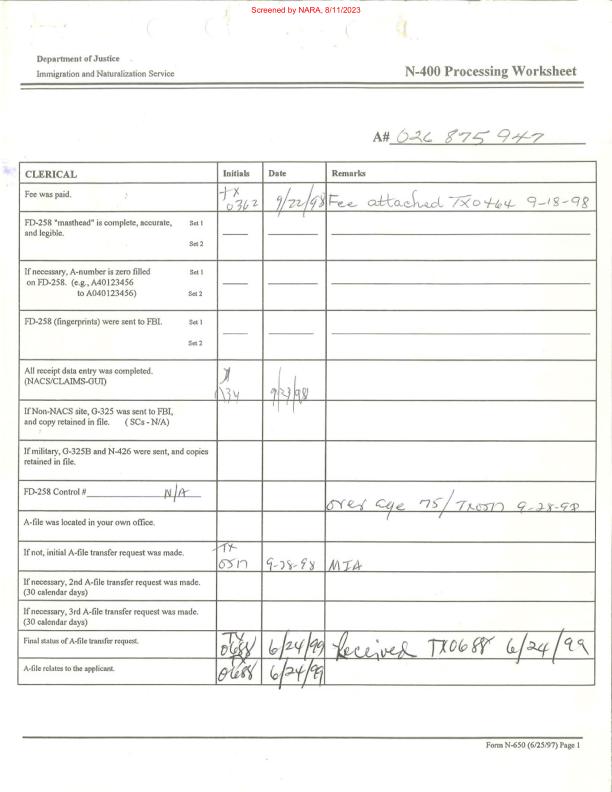 Screened by NARA, 8/11/2023
Department of Justice
Immigration and Naturalization Service
N-400 Processing Worksheet
A# 026 875 947
CLERICAL Initials Date Remarks
Fee was paid. TX 0362 9/22/98 Fee attached TX0464 9-18-98
FD-258 "masthead" is complete, accurate, Set 1
and legible.
Set 2
If necessary, A-number is zero filled Set 1
on FD-258. (e.g., A40123456
to A040123456) Set 2
FD-258 (fingerprints) were sent to FBI. Set 1
Set 2
All receipt data entry was completed.
(NACS/CLAIMS-GUI) 9/23/98
If Non-NACS site, G-325 was sent to FBI,
and copy retained in file. ( SCs - N/A)
If military, G-325B and N-426 were sent, and copies
retained in file.
FD-258 Control # N/A
over age 75/TX0517 9-28-98
A-file was located in your own office.
If not, initial A-file transfer request was made. TX 0517 9-28-98 MIA
If necessary, 2nd A-file transfer request was made.
(30 calendar days)
If necessary, 3rd A-file transfer request was made.
(30 calendar days)
Final status of A-file transfer request. TX 0688 6/24/99 Received TX0688 6/24/99
A-file relates to the applicant. TX 0688 6/24/99
Form N-650 (6/25/97) Page 1